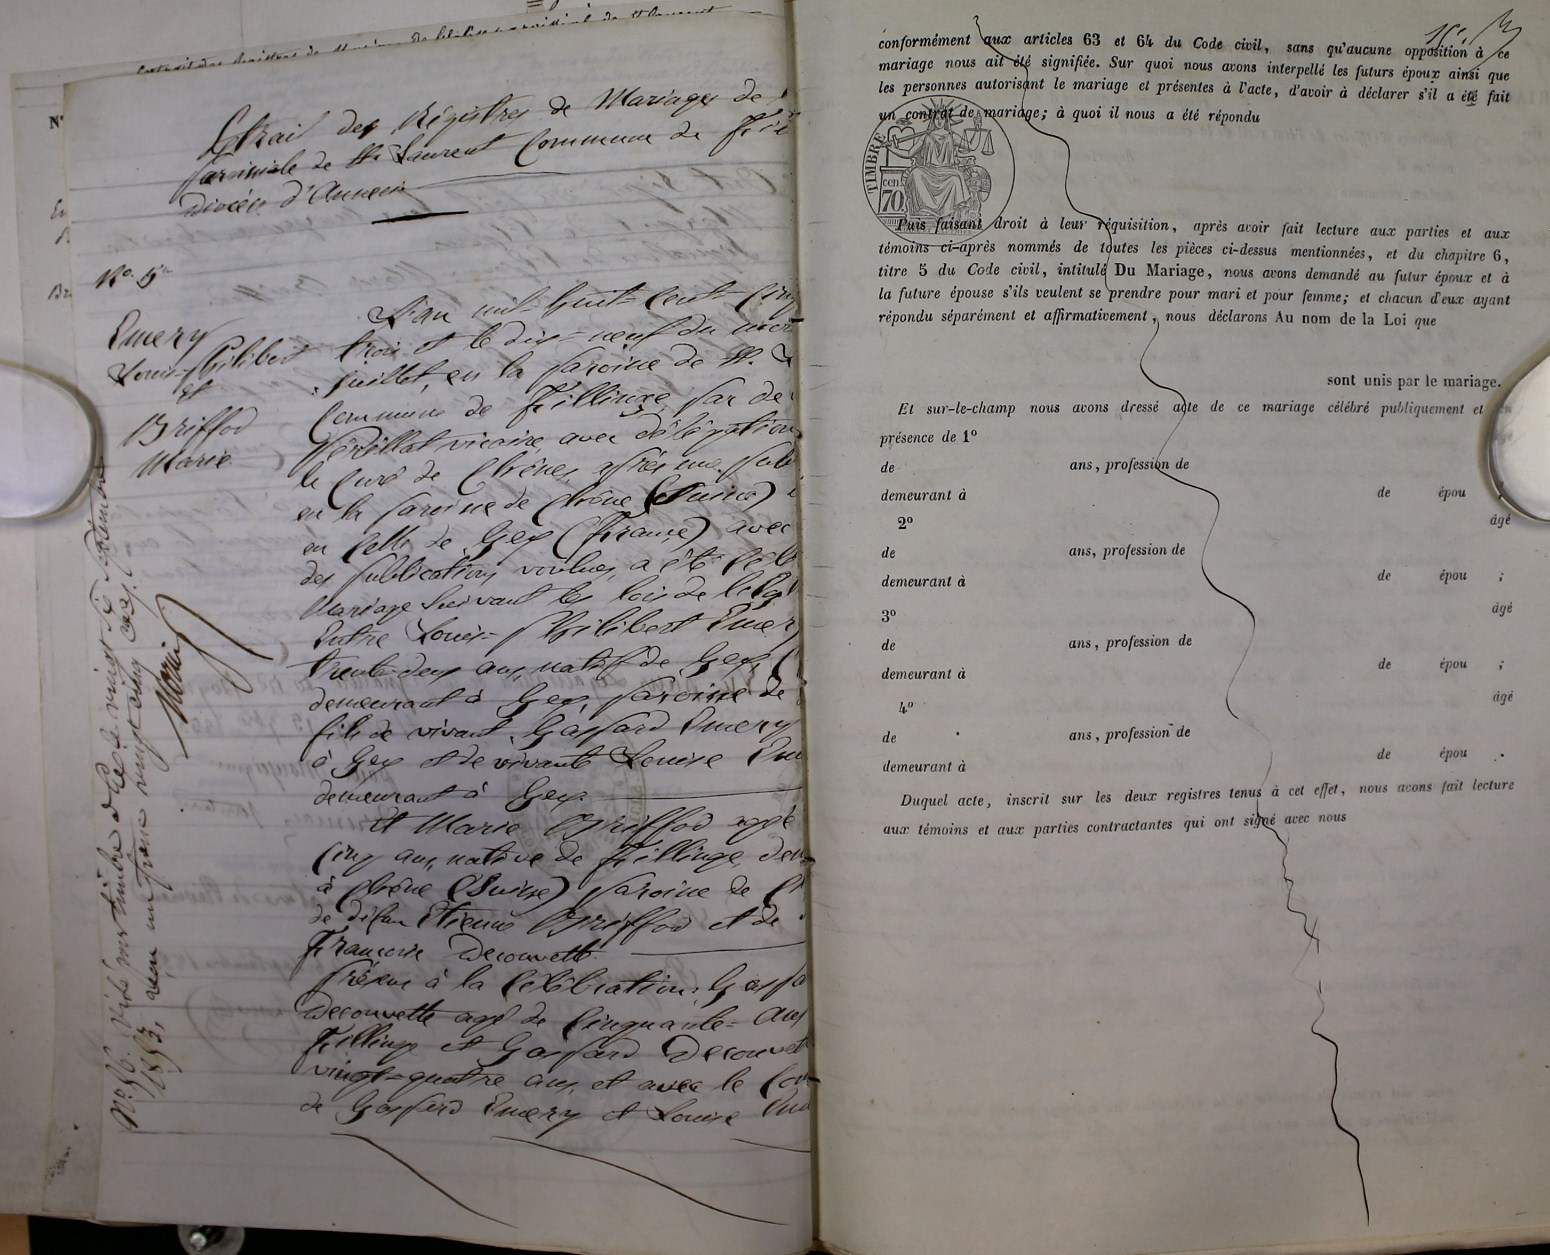 Extrait des Régistres de Mariages de
Paroissiale de St. Laurent Commune de Fil
Diocèse d'Annecy
No. 5
Emery
Louis-Philibert
et
Briffod
Marie
L'an mil-huit-cent-cinq
trois et le dix-neuf du mois
Juillet, en la paroisse de St.
Commune de Fillinge, par de
vicaire, avec délégation
le Curé de Chênes, après une publ
en la paroisse de Chêne (Suisse)
en celle de Gex (France) avec
des publications voulues, a été célé
Mariage suivant les lois de l'Egl
Entre Louis-Philibert Emery
trente-deux ans, natif de Gex, (
demeurant à Gex, paroisse de
fils de vivant Gaspard Emery
à Gex et de vivante Louise Em
demeurant à Gex.
et Marie Briffod agée
cinq ans, native de Fillinge dem
à Chêne (Suisse) paroisse de Ch
de défun Etienne Briffod et de
Francoise Decouvette
Présens à la Célébration: Gaspa
Decouvette agé de Cinquante-Ans
Fillinge et Gaspard Decouvet
vingt-quatre ans, et avec le Con
de Gaspard Emery et Louise Em
conformément aux articles 63 et 64 du Code civil, sans qu'aucune opposition à ce
mariage nous ait été signifiée. Sur quoi nous avons interpellé les futurs époux ainsi que
les personnes autorisant le mariage et présentes à l'acte, d'avoir à déclarer s'il a été fait
un contrat de mariage; à quoi il nous a été répondu
TIMBRE
cen
70
Puis faisant droit à leur réquisition, après avoir fait lecture aux parties et aux
témoins ci-après nommés de toutes les pièces ci-dessus mentionnées, et du chapitre 6,
titre 5 du Code civil, intitulé Du Mariage, nous avons demandé au futur époux et à
la future épouse s'ils veulent se prendre pour mari et pour femme; et chacun d'eux ayant
répondu séparément et affirmativement, nous déclarons Au nom de la Loi que
sont unis par le mariage.
Et sur-le-champ nous avons dressé acte de ce mariage célébré publiquement et
présence de 1º
de ans, profession de
demeurant à de épou
2º âgé
de ans, profession de
demeurant à de épou ;
3º âgé
de ans, profession de
demeurant à de épou ;
4º âgé
de ans, profession de
demeurant à de épou .
Duquel acte, inscrit sur les deux registres tenus à cet effet, nous avons fait lecture
aux témoins et aux parties contractantes qui ont signé avec nous